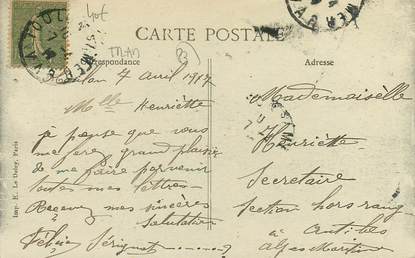 40f
CARTE POSTALE
TOULON
Correspondance
Adresse
Toulon 7 avril 1917
Mlle Henriette
je pense que vous
me fere grand plaisir
de me faire parvenir
toutes mes lettres
Recevez mes sincères
Salutation
Félicien Sérignat ?
Mademoiselle
Henriette
Secretaire
section hors rang
à Antibes
Alpes Maritime
Imp. E. Le Deley, Paris